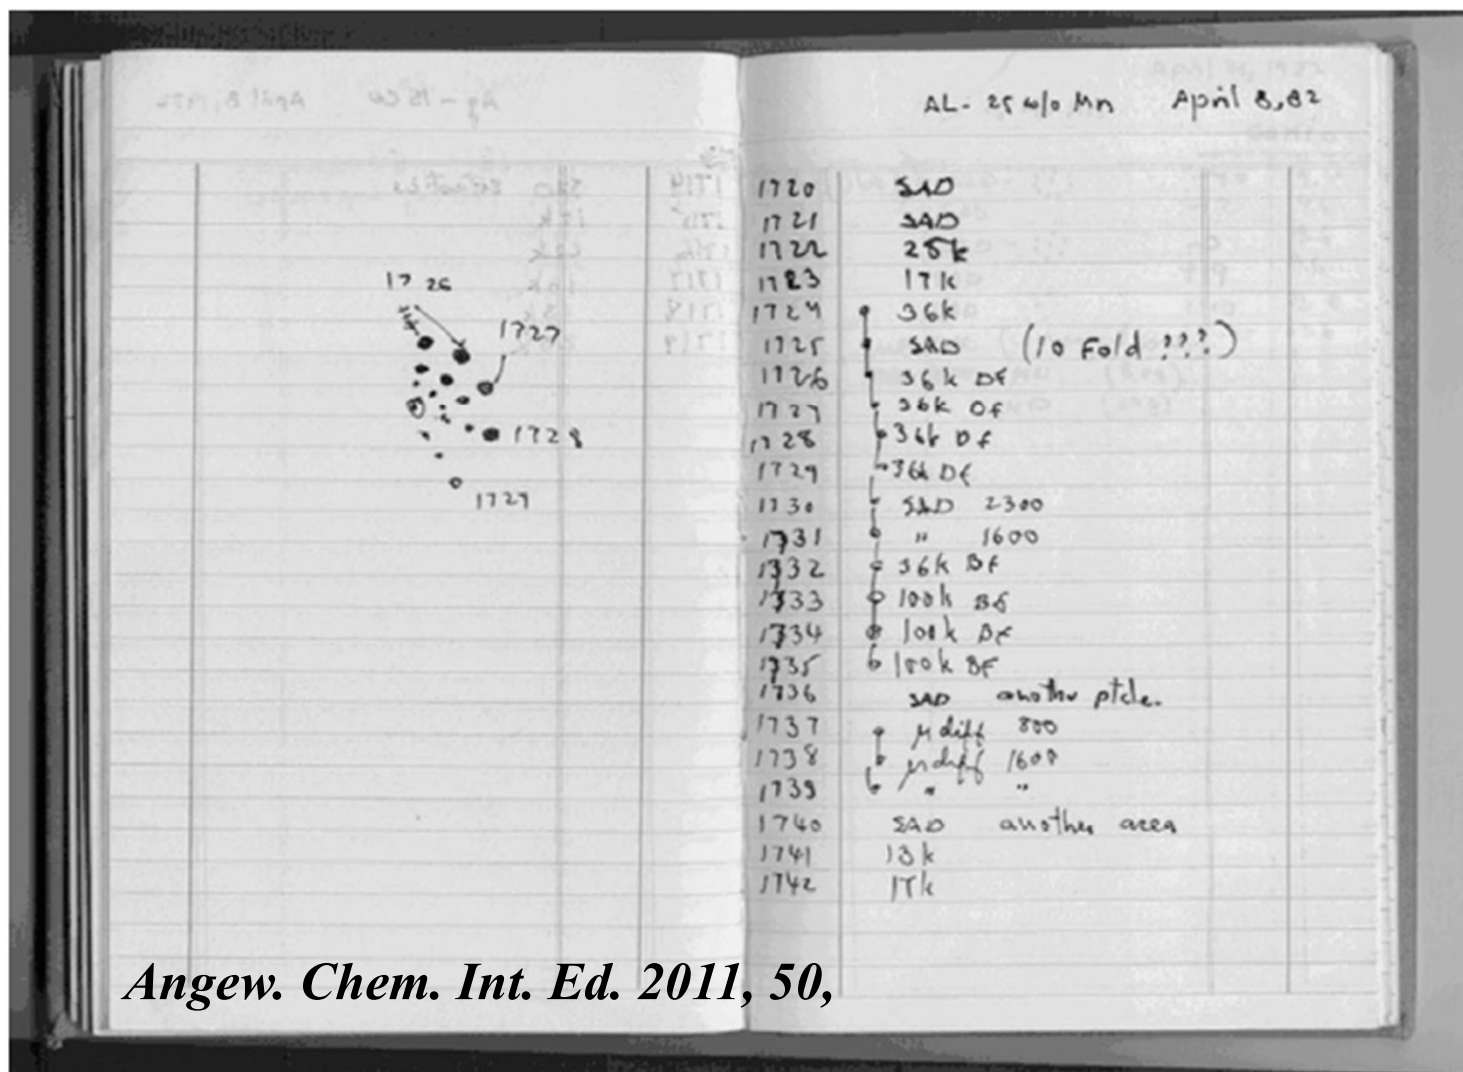 1726
1727
1728
1729
AL- 25 w/o Mn April 8, 82
1720 SAD
1721 SAD
1722 25k
1723 17k
1724 36k
1725 SAD (10 Fold ???)
1726 36k DF
1727 36k DF
1728 36k DF
1729 36k DF
1730 SAD 2300
1731 " 1600
1732 36k BF
1733 100k BF
1734 100k DF
1735 100k BF
1736 SAD another ptcle.
1737 μ diff 800
1738 μ diff 1600
1739 " "
1740 SAD another area
1741 13k
1742 17k
Angew. Chem. Int. Ed. 2011, 50,